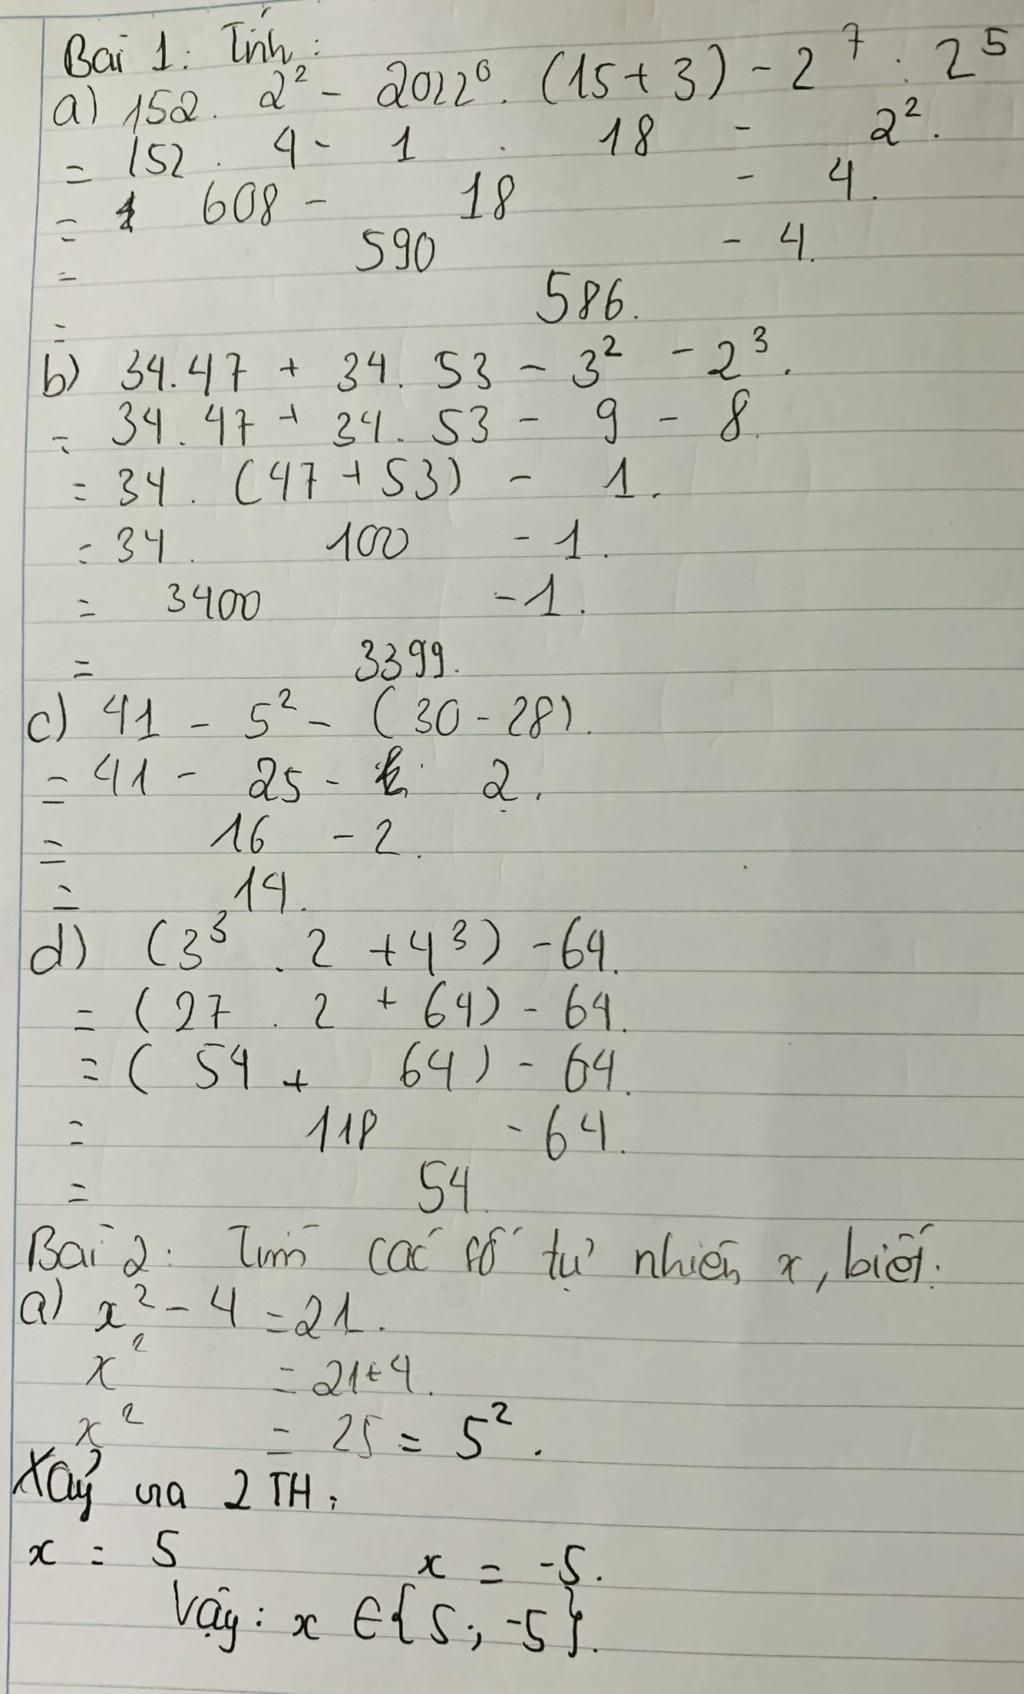 Bài 1: Tính:
a) 152. 2² - 2022⁰. (15+3) - 2⁷ : 2⁵
= 152 . 4 - 1 . 18 - 2².
= 608 - 18 - 4.
= 590 - 4.
= 586.
b) 34.47 + 34. 53 - 3² - 2³.
= 34.47 + 34. 53 - 9 - 8.
= 34 . (47+53) - 1.
= 34. 100 - 1.
= 3400 - 1.
= 3399.
c) 41 - 5² - (30 - 28).
= 41 - 25 - 2.
= 16 - 2.
= 14.
d) (3³ . 2 + 4³) - 64.
= (27 . 2 + 64) - 64.
= ( 54 + 64) - 64.
= 118 - 64.
= 54.
Bài 2: Tìm các số tự nhiên x, biết:
a) x² - 4 = 21.
x² = 21+4.
x² = 25 = 5².
Xảy ra 2 TH:
x = 5 x = -5.
Vậy: x ∈ {5; -5}.